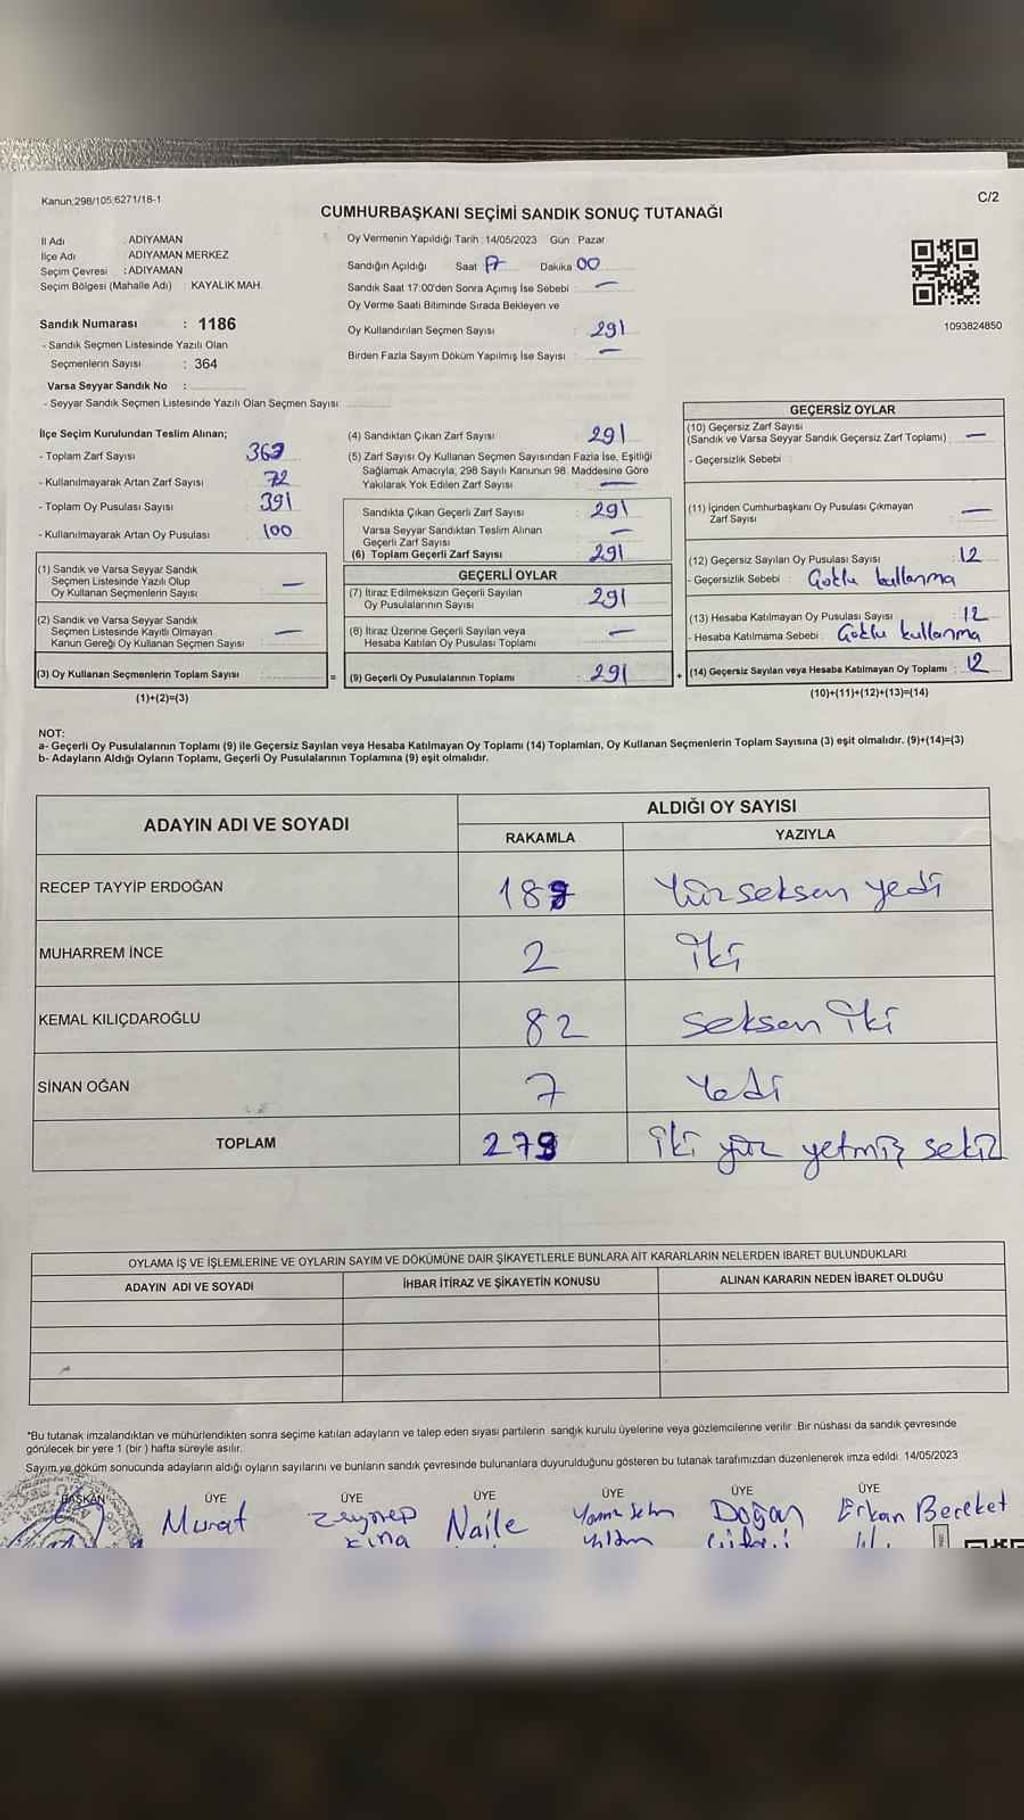 Kanun;298/105,6271/18-1
C/2
CUMHURBAŞKANI SEÇİMİ SANDIK SONUÇ TUTANAĞI
İl Adı : ADIYAMAN
İlçe Adı ADIYAMAN MERKEZ
Seçim Çevresi : ADIYAMAN
Seçim Bölgesi (Mahalle Adı) : KAYALIK MAH.
Sandık Numarası : 1186
- Sandık Seçmen Listesinde Yazılı Olan
Seçmenlerin Sayısı : 364
Varsa Seyyar Sandık No :
- Seyyar Sandık Seçmen Listesinde Yazılı Olan Seçmen Sayısı
Oy Vermenin Yapıldığı Tarih : 14/05/2023 Gün : Pazar
Sandığın Açıldığı Saat 17 Dakika 00
Sandık Saat 17:00'den Sonra Açımış İse Sebebi : —
Oy Verme Saati Bitiminde Sırada Bekleyen ve
Oy Kullandırılan Seçmen Sayısı : 291
Birden Fazla Sayım Döküm Yapılmış İse Sayısı : —
1093824850
İlçe Seçim Kurulundan Teslim Alınan;
- Toplam Zarf Sayısı
- Kullanılmayarak Artan Zarf Sayısı : 72
- Toplam Oy Pusulası Sayısı : 391
- Kullanılmayarak Artan Oy Pusulası : 100
(1) Sandık ve Varsa Seyyar Sandık
Seçmen Listesinde Yazılı Olup
Oy Kullanan Seçmenlerin Sayısı —
(2) Sandık ve Varsa Seyyar Sandık
Seçmen Listesinde Kayıtlı Olmayan
Kanun Gereği Oy Kullanan Seçmen Sayısı —
(3) Oy Kullanan Seçmenlerin Toplam Sayısı =
(1)+(2)=(3)
(4) Sandıktan Çıkan Zarf Sayısı : 291
(5) Zarf Sayısı Oy Kullanan Seçmen Sayısından Fazla İse, Eşitliği
Sağlamak Amacıyla, 298 Sayılı Kanunun 98. Maddesine Göre
Yakılarak Yok Edilen Zarf Sayısı —
Sandıkta Çıkan Geçerli Zarf Sayısı : 291
Varsa Seyyar Sandıktan Teslim Alınan
Geçerli Zarf Sayısı —
(6) Toplam Geçerli Zarf Sayısı : 291
GEÇERLİ OYLAR
(7) İtiraz Edilmeksizin Geçerli Sayılan
Oy Pusulalarının Sayısı 291
(8) İtiraz Üzerine Geçerli Sayılan veya
Hesaba Katılan Oy Pusulası Toplamı —
(9) Geçerli Oy Pusulalarının Toplamı : 291 +
GEÇERSİZ OYLAR
(10) Geçersiz Zarf Sayısı
(Sandık ve Varsa Seyyar Sandık Geçersiz Zarf Toplamı) —
- Geçersizlik Sebebi :
(11) İçinden Cumhurbaşkanı Oy Pusulası Çıkmayan
Zarf Sayısı —
(12) Geçersiz Sayılan Oy Pusulası Sayısı : 12
- Geçersizlik Sebebi : Çoklu kullanma
(13) Hesaba Katılmayan Oy Pusulası Sayısı : 12
- Hesaba Katılmama Sebebi : Çoklu kullanma
(14) Geçersiz Sayılan veya Hesaba Katılmayan Oy Toplamı : 12
(10)+(11)+(12)+(13)=(14)
NOT:
a- Geçerli Oy Pusulalarının Toplamı (9) ile Geçersiz Sayılan veya Hesaba Katılmayan Oy Toplamı (14) Toplamları, Oy Kullanan Seçmenlerin Toplam Sayısına (3) eşit olmalıdır. (9)+(14)=(3)
b- Adayların Aldığı Oyların Toplamı, Geçerli Oy Pusulalarının Toplamına (9) eşit olmalıdır.
ADAYIN ADI VE SOYADI ALDIĞI OY SAYISI
RAKAMLA YAZIYLA
RECEP TAYYİP ERDOĞAN 187 Yüz seksen yedi
MUHARREM İNCE 2 İki
KEMAL KILIÇDAROĞLU 82 seksen iki
SİNAN OĞAN 7 Yedi
TOPLAM 278 iki yüz yetmiş sekiz
OYLAMA İŞ VE İŞLEMLERİNE VE OYLARIN SAYIM VE DÖKÜMÜNE DAİR ŞİKAYETLERLE BUNLARA AİT KARARLARIN NELERDEN İBARET BULUNDUKLARI
ADAYIN ADI VE SOYADI İHBAR İTİRAZ VE ŞİKAYETİN KONUSU ALINAN KARARIN NEDEN İBARET OLDUĞU
*Bu tutanak imzalandıktan ve mühürlendikten sonra seçime katılan adayların ve talep eden siyasi partilerin sandık kurulu üyelerine veya gözlemcilerine verilir. Bir nüshası da sandık çevresinde
görülecek bir yere 1 (bir ) hafta süreyle asılır.
Sayım ve döküm sonucunda adayların aldığı oyların sayılarını ve bunların sandık çevresinde bulunanlara duyurulduğunu gösteren bu tutanak tarafımızdan düzenlenerek imza edildi. 14/05/2023
BAŞKAN ÜYE ÜYE ÜYE ÜYE ÜYE ÜYE
Murat Zeynep Naile Doğan Erkan Bereket